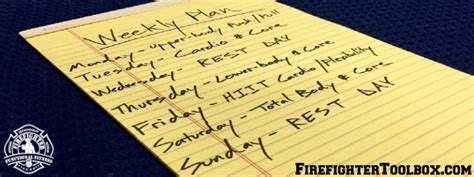 Weekly Plan
Monday - Upper body Push/Pull
Tuesday - Cardio & Core
Wednesday - REST DAY
Thursday - Lower body & Core
Friday - HIIT Cardio/Flexibility
Saturday - Total Body & Core
Sunday - REST DAY
FIREFIGHTER
FUNCTIONAL FITNESS
FIREFIGHTERTOOLBOX.COM